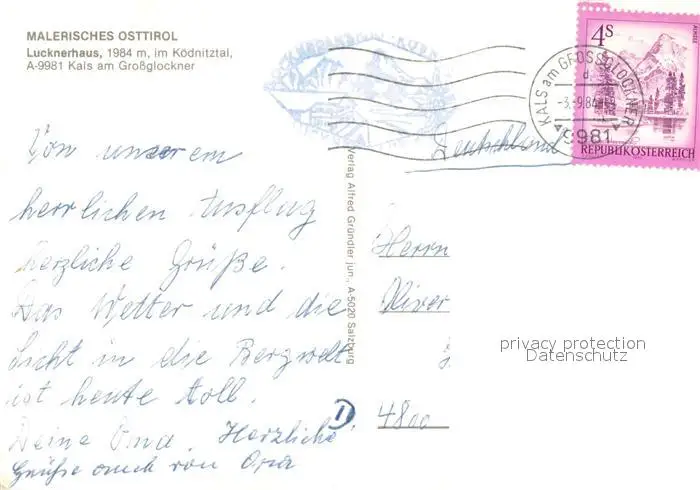 MALERISCHES OSTTIROL
Lucknerhaus, 1984 m, im Ködnitztal,
A-9981 Kals am Großglockner
4S
REPUBLIK ÖSTERREICH
KALS am GROSSGLOCKNER
-3.-9.84
9981
Deutschland
Von unserem
herrlichen Ausflug
herzliche Grüße.
Das Wetter und die
Sicht in die Bergwelt
ist heute toll.
Deine Oma. Herzliche
Grüße auch von Opa
Verlag Alfred Gründler jun., A-5020 Salzburg
Herrn
Oliver
4800
privacy protection
Datenschutz